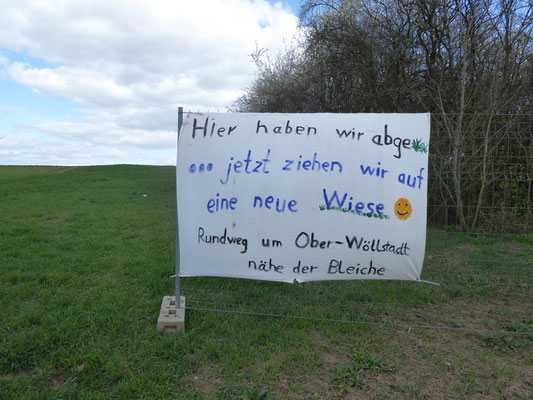 Hier haben wir abge
... jetzt ziehen wir auf
eine neue Wiese
Rundweg um Ober-Wöllstadt
nähe der Bleiche